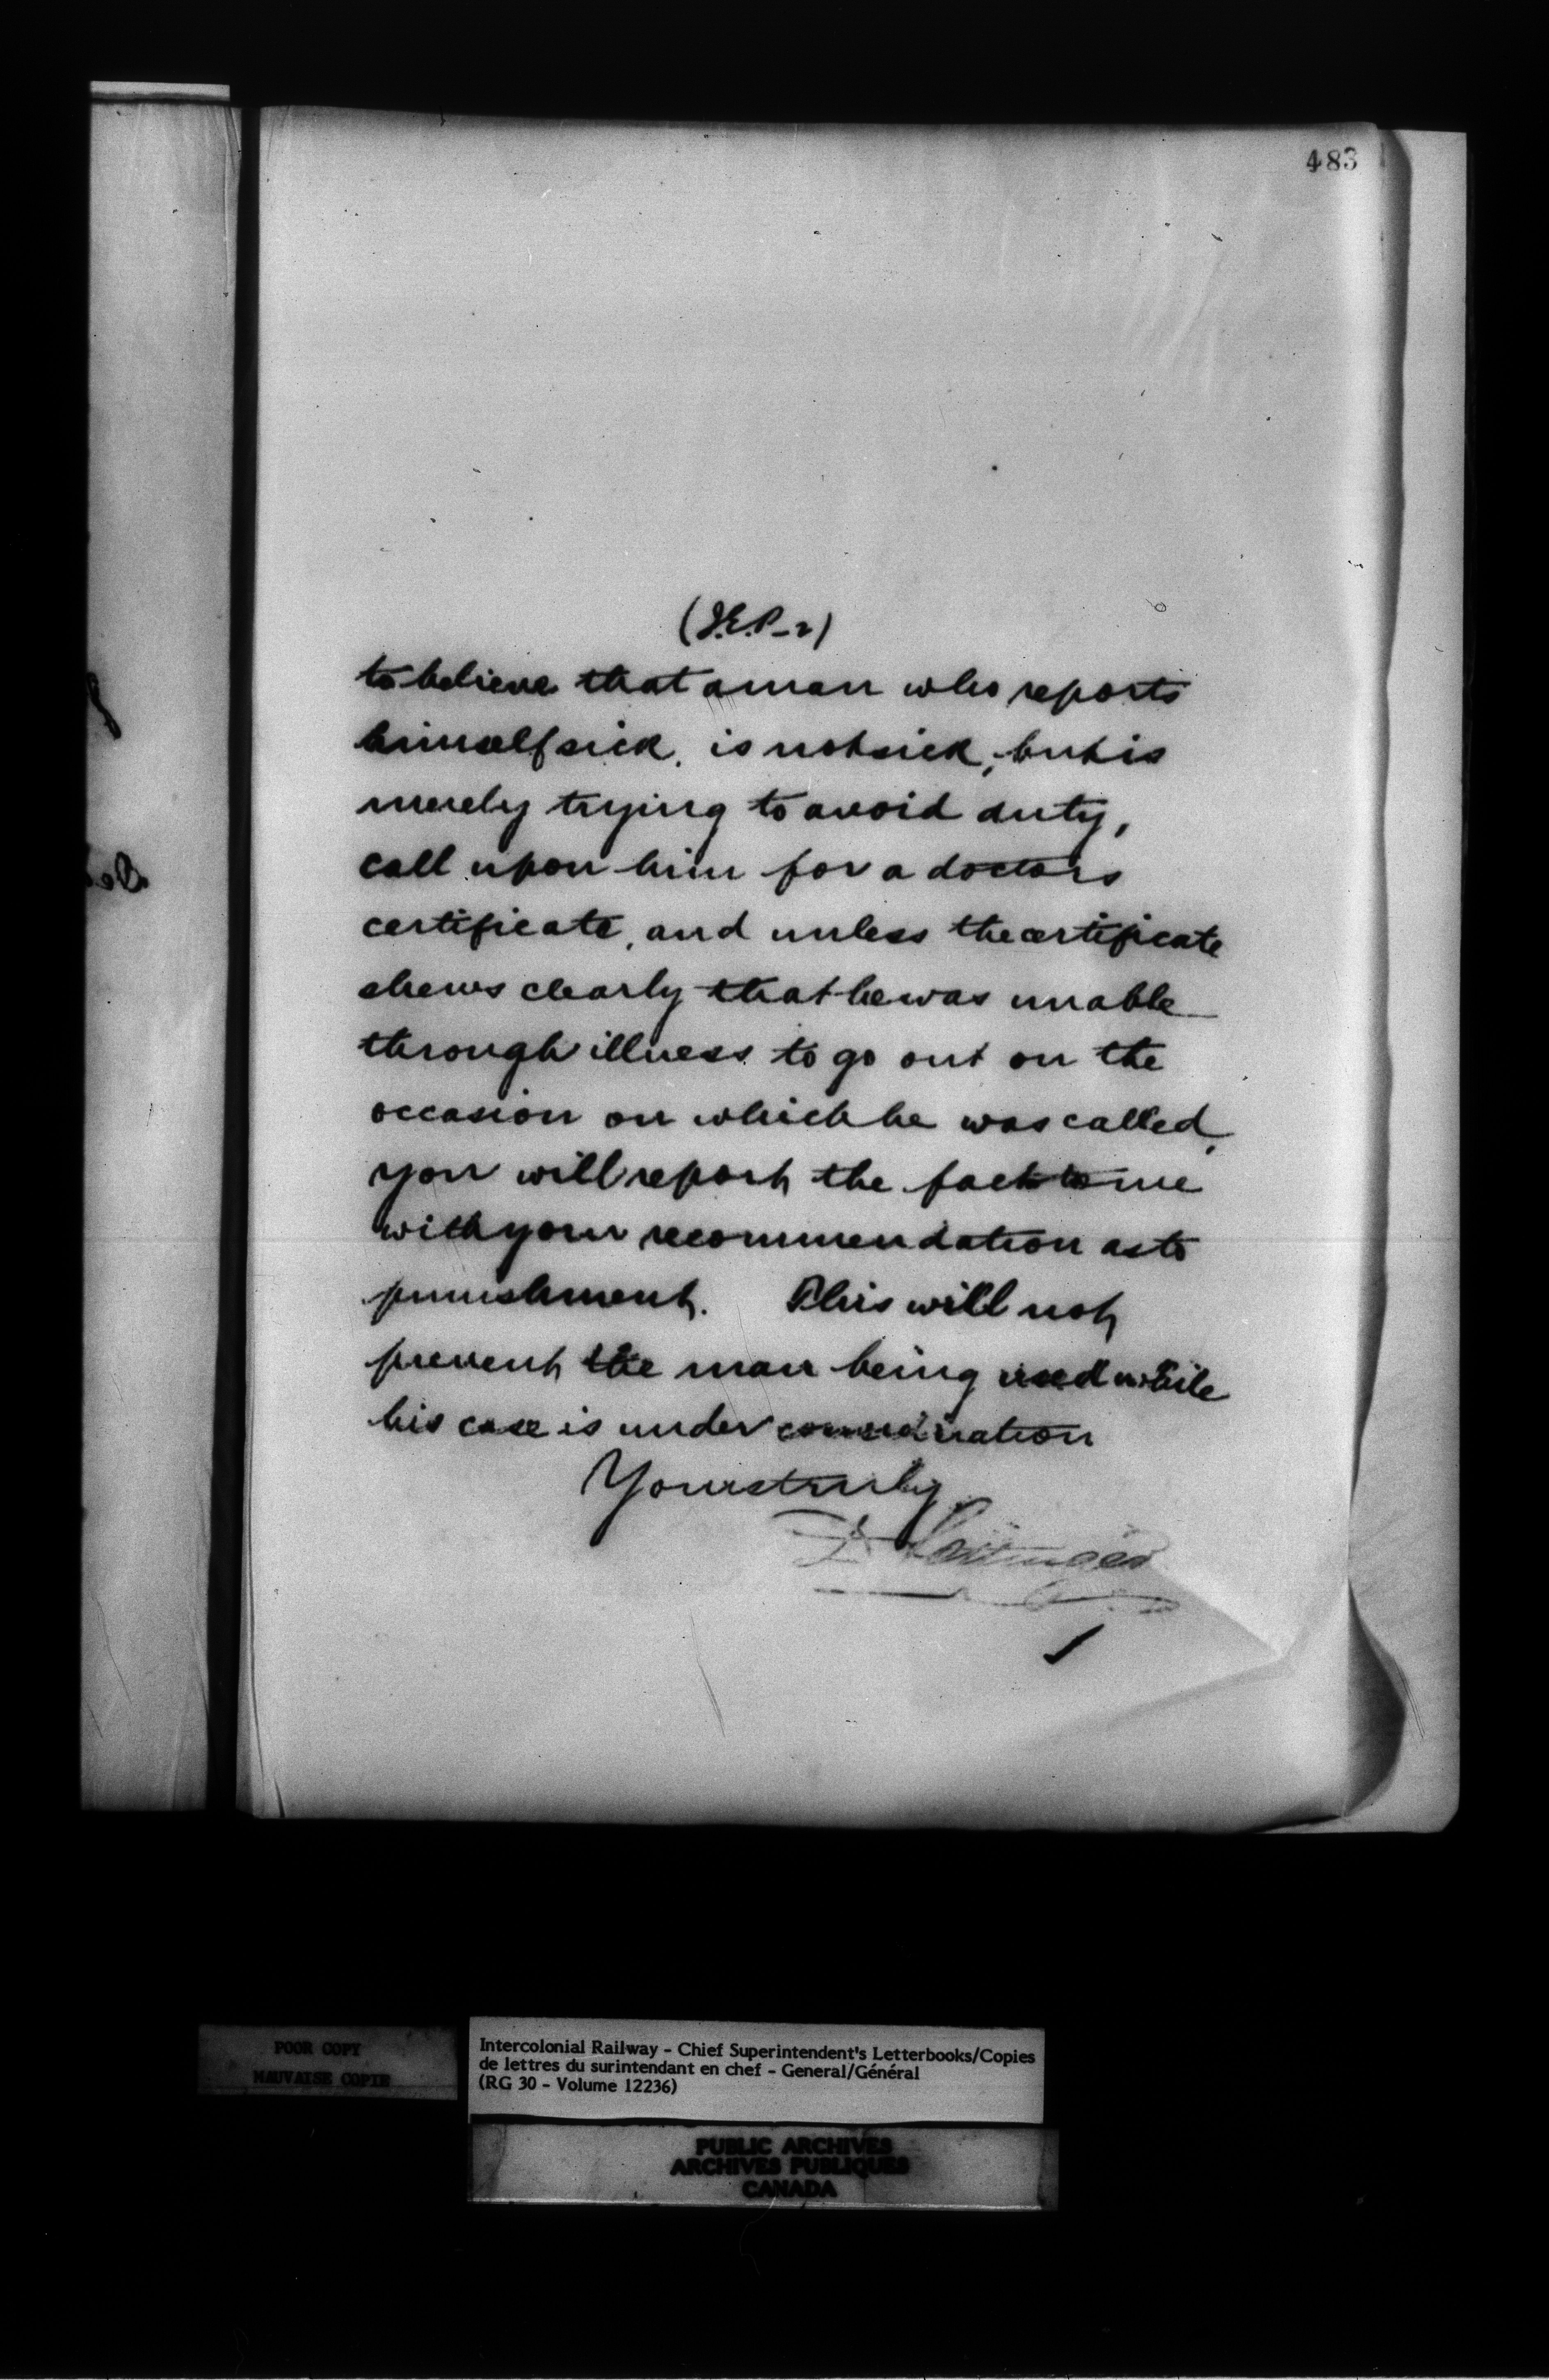 483
(J.E.P-2)
to believe that a man who reports
himself sick, is not sick, but is
merely trying to avoid duty,
call upon him for a doctors
certificate, and unless the certificate
shews clearly that he was unable
through illness to go out on the
occasion on which he was called,
you will report the fact to me
with your recommendation as to
punishment. This will not
prevent the man being used while
his case is under consideration
Yours truly
D Pottinger
POOR COPY
MAUVAISE COPIE
Intercolonial Railway - Chief Superintendent's Letterbooks/Copies
de lettres du surintendant en chef - General/Général
(RG 30 - Volume 12236)
PUBLIC ARCHIVES
ARCHIVES PUBLIQUES
CANADA